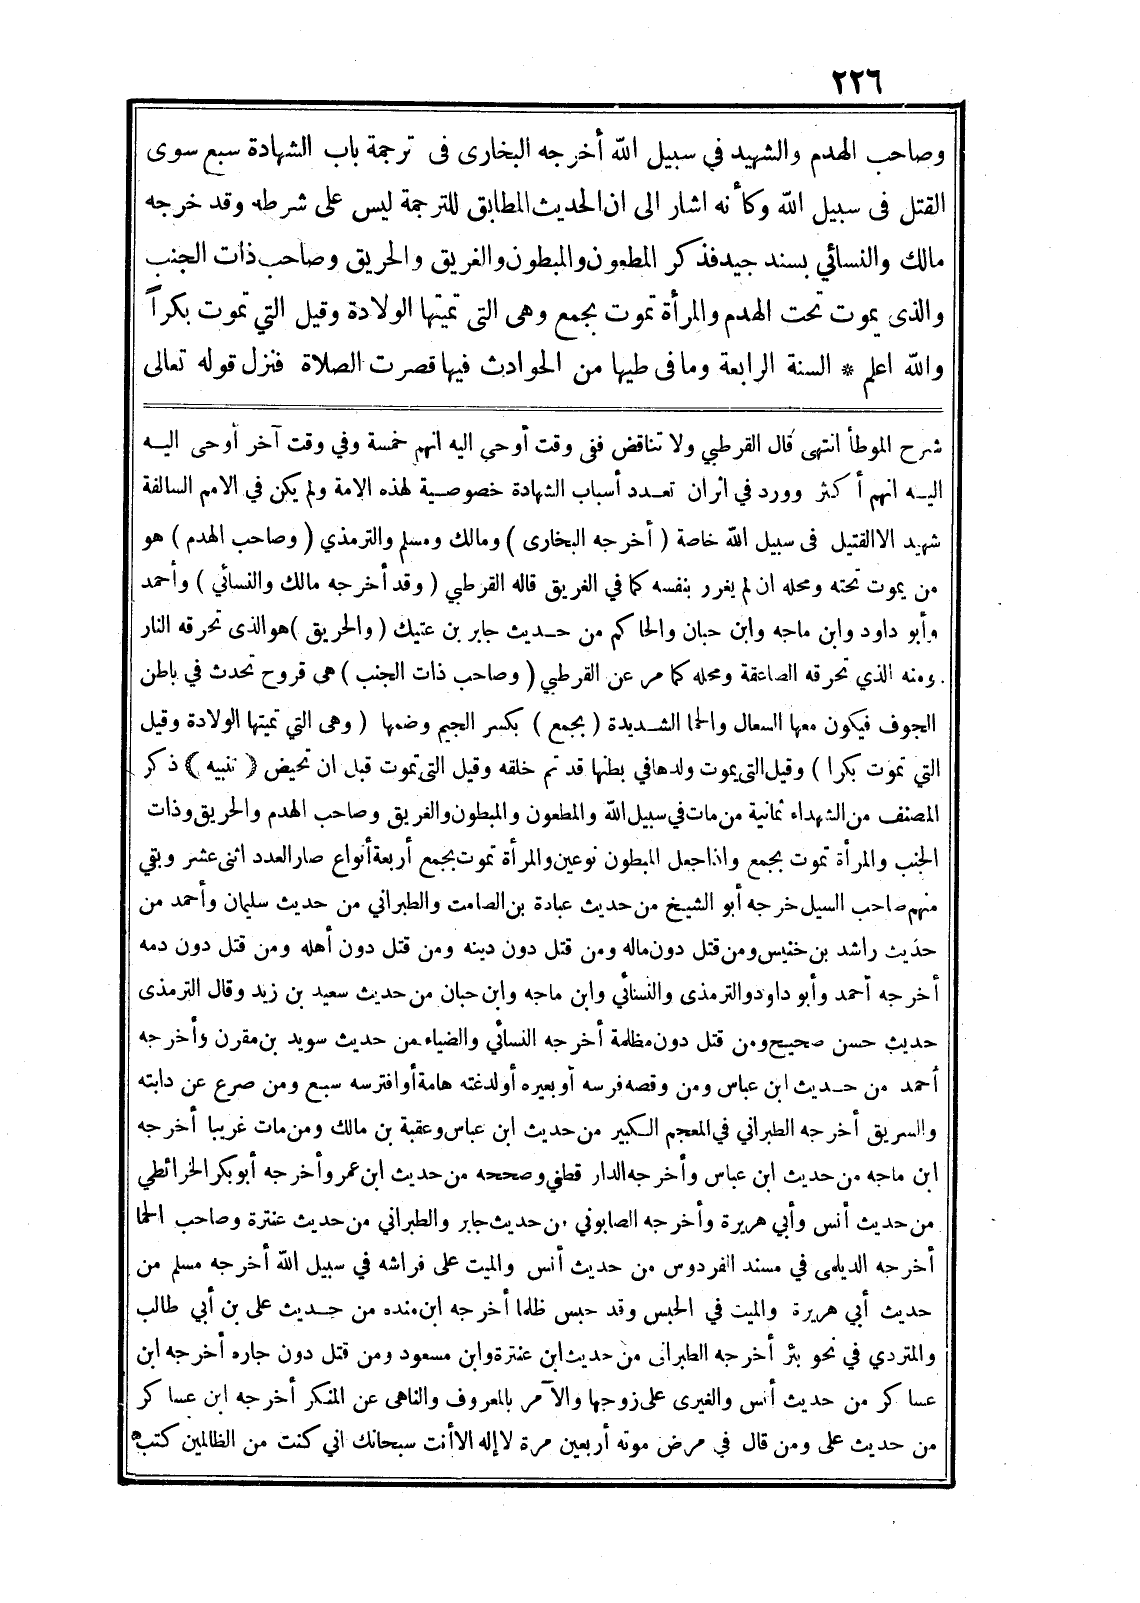 ٢٢٦
وصاحب الهدم والشهيد في سبيل الله أخرجه البخارى فى ترجمة باب الشهادة سبع سوى
القتل فى سبيل الله وكأنه اشار الى ان الحديث المطابق للترجمة ليس على شرطه وقد خرجه
مالك والنسائي بسند جيد فذكر المطعون والمبطون والغريق والحريق وصاحب ذات الجنب
والذى يموت تحت الهدم والمرأة تموت بجمع وهى التى تميتها الولادة وقيل التي تموت بكراً
والله اعلم * السنة الرابعة وما فى طيها من الحوادث فيها قصرت الصلاة فنزل قوله تعالى
شرح الموطأ انتهى قال القرطبي ولا تناقض ففى وقت أوحي اليه انهم خمسة وفي وقت آخر أوحى اليه
اليه انهم أكثر وورد في اثران تعدد أسباب الشهادة خصوصية لهذه الامة ولم يكن في الامم السالفة
شهيد الا القتيل فى سبيل الله خاصة ( أخرجه البخارى ) ومالك ومسلم والترمذي ( وصاحب الهدم ) هو
من يموت تحته ومحله ان لم يغرر بنفسه كما في الغريق قاله القرطبي ( وقد أخرجه مالك والنسائي ) وأحمد
وأبو داود وابن ماجه وابن حبان والحاكم من حديث جابر بن عتيك ( والحريق ) هو الذى تحرقه النار
ومنه الذي تحرقه الصاعقة ومحله كما مر عن القرطبي ( وصاحب ذات الجنب ) هى قروح تحدث في باطن
الجوف فيكون معها السعال والحما الشديدة ( بجمع ) بكسر الجيم وضمها ( وهى التي تميتها الولادة وقيل
التي تموت بكرا ) وقيل التى يموت ولدها في بطنها قد تم خلقه وقيل التى تموت قبل ان تحيض ( تنبيه ) ذكر
المصنف من الشهداء ثمانية من مات في سبيل الله والمطعون والمبطون والغريق وصاحب الهدم والحريق وذات
الجنب والمرأة تموت بجمع واذا جعل المبطون نوعين والمرأة تموت بجمع أربعة أنواع صار العدد اثنى عشر وبقي
منهم صاحب السيل خرجه أبو الشيخ من حديث عبادة بن الصامت والطبراني من حديث سليمان وأحمد من
حديث راشد بن خنيس ومن قتل دون ماله ومن قتل دون دينه ومن قتل دون أهله ومن قتل دون دمه
أخرجه أحمد وأبو داود والترمذى والنسائي وابن ماجه وابن حبان من حديث سعيد بن زيد وقال الترمذى
حديث حسن صحيح ومن قتل دون مظلمة أخرجه النسائي والضياء من حديث سويد بن مقرن وأخرجه
أحمد من حديث ابن عباس ومن وقصه فرسه أو بعيره أو لدغته هامة أو افترسه سبع ومن صرع عن دابته
والسريق أخرجه الطبراني في المعجم الكبير من حديث ابن عباس وعقبة بن مالك ومن مات غريبا أخرجه
ابن ماجه من حديث ابن عباس وأخرجه الدار قطني وصححه من حديث ابن عمر وأخرجه أبو بكر الخرائطي
من حديث أنس وأبي هريرة وأخرجه الصابوني من حديث جابر والطبراني من حديث عنترة وصاحب الحما
أخرجه الديلمى في مسند الفردوس من حديث أنس والميت على فراشه في سبيل الله أخرجه مسلم من
حديث أبي هريرة والميت في الحبس وقد حبس ظلما أخرجه ابن منده من حديث على بن أبي طالب
والمتردي في نحو بئر أخرجه الطبرانى من حديث ابن عنترة وابن مسعود ومن قتل دون جاره أخرجه ابن
عساكر من حديث أنس والغيرى على زوجها والآمر بالمعروف والناهى عن المنكر أخرجه ابن عساكر
من حديث على ومن قال في مرض موته أربعين مرة لا إله الا أنت سبحانك اني كنت من الظالمين كتب